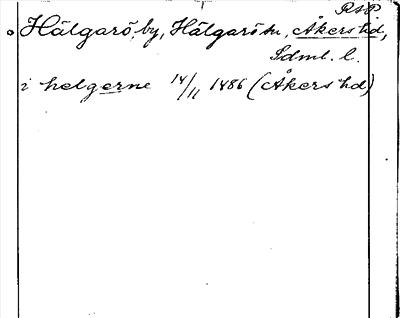 RAP.
Hälgarö, by, Hälgarö hn, Åkers hd,
Sdml. l.
i helgerne 14/11 1486 (Åkers hd)